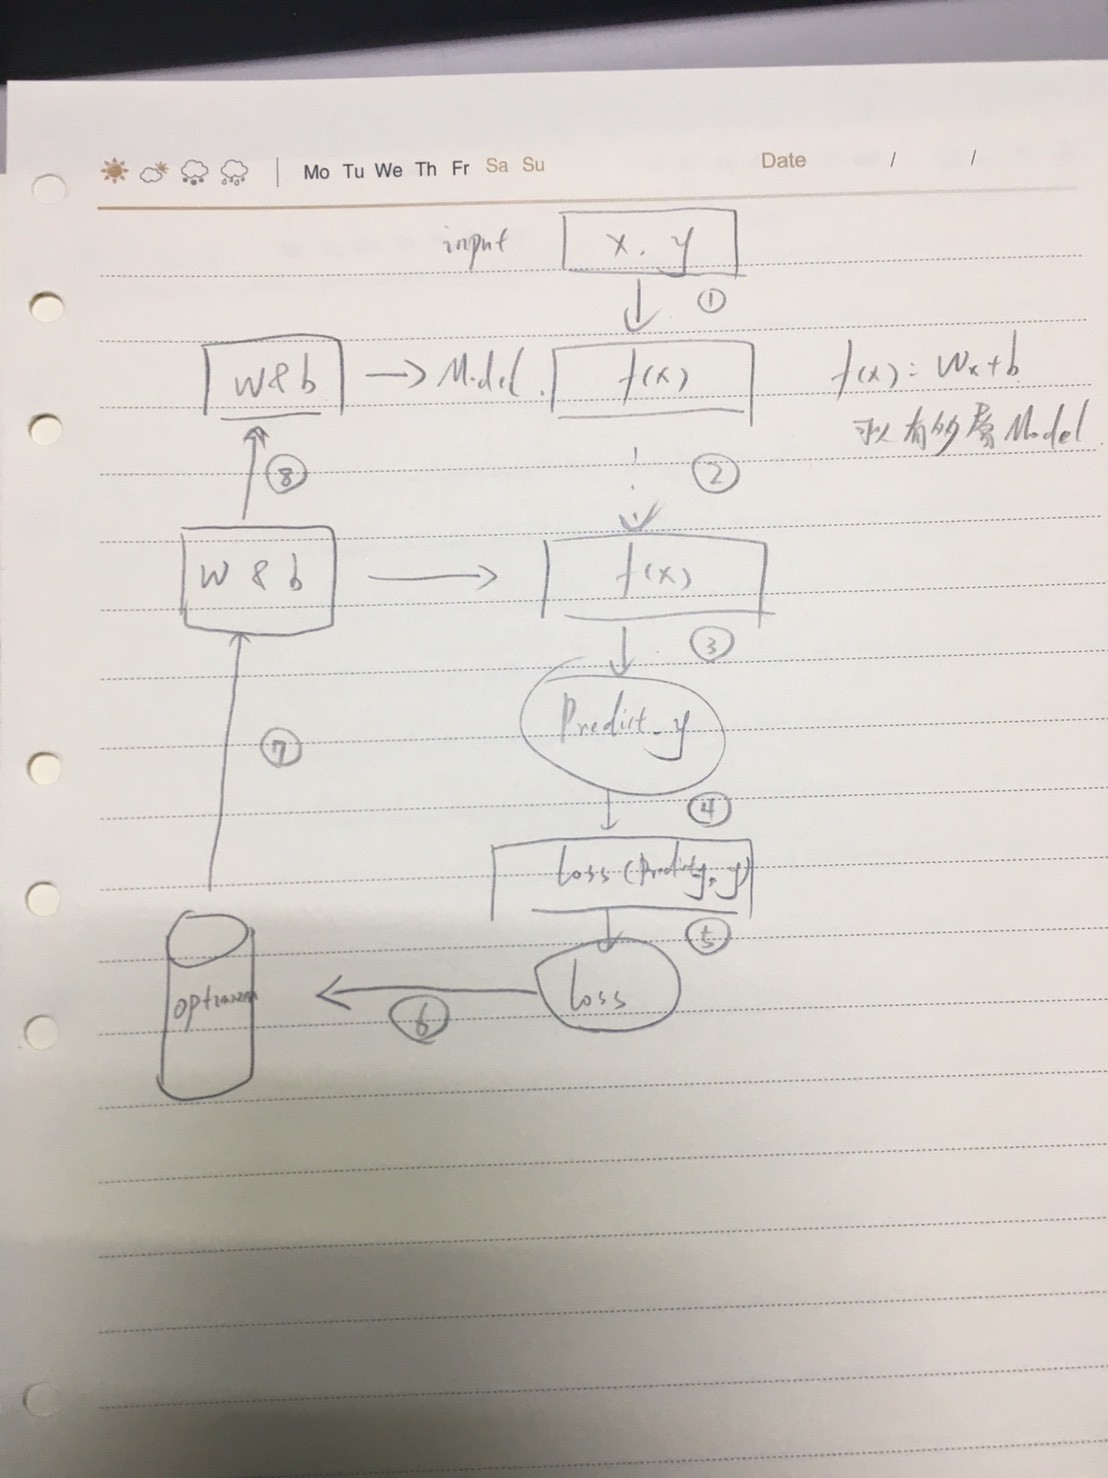 Mo Tu We Th Fr Sa Su Date / /
input x. y
①
w&b → Model. f(x) f(x): wx+b
可以有多層Model
⑧ ②
w & b → f(x)
③
Predict_y
⑦
④
loss (Predict_y, y)
⑤
loss
⑥